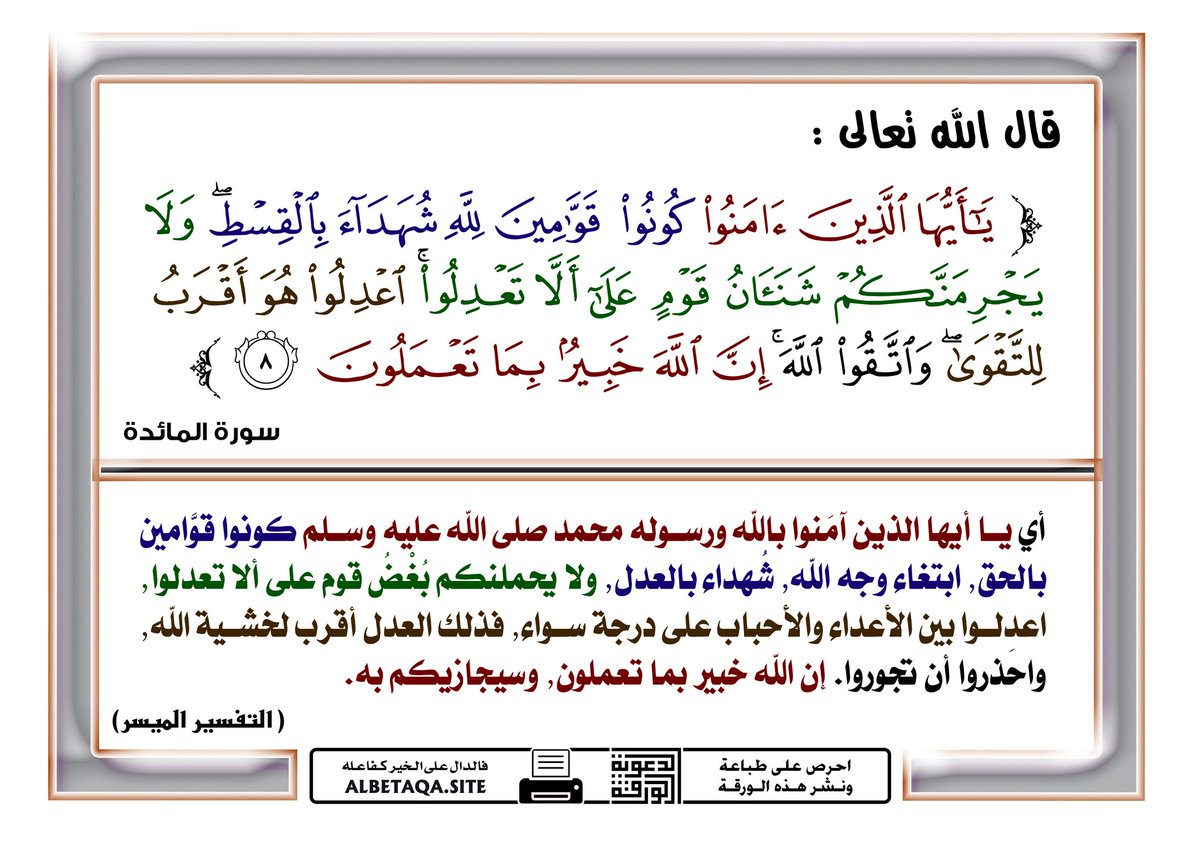 قال الله تعالى :
﴿ يَـٰٓأَيُّهَا ٱلَّذِينَ ءَامَنُوا۟ كُونُوا۟ قَوَّٰمِينَ لِلَّهِ شُهَدَآءَ بِٱلْقِسْطِ ۖ وَلَا
يَجْرِمَنَّكُمْ شَنَـَٔانُ قَوْمٍ عَلَىٰٓ أَلَّا تَعْدِلُوا۟ ۚ ٱعْدِلُوا۟ هُوَ أَقْرَبُ
لِلتَّقْوَىٰ ۖ وَٱتَّقُوا۟ ٱللَّهَ ۚ إِنَّ ٱللَّهَ خَبِيرٌۢ بِمَا تَعْمَلُونَ ٨ ﴾
سورة المائدة
أي يا أيها الذين آمَنوا بالله ورسوله محمد صلى الله عليه وسلم كونوا قوَّامين
بالحق, ابتغاء وجه الله, شُهداء بالعدل, ولا يحملنكم بُغْضُ قوم على ألا تعدلوا,
اعدلوا بين الأعداء والأحباب على درجة سواء, فذلك العدل أقرب لخشية الله,
واحذروا أن تجوروا. إن الله خبير بما تعملون, وسيجازيكم به.
(التفسير الميسر)
احرص على طباعة
ونشر هذه الورقة
الورقة الدعوية
فالدال على الخير كفاعله
ALBETAQA.SITE